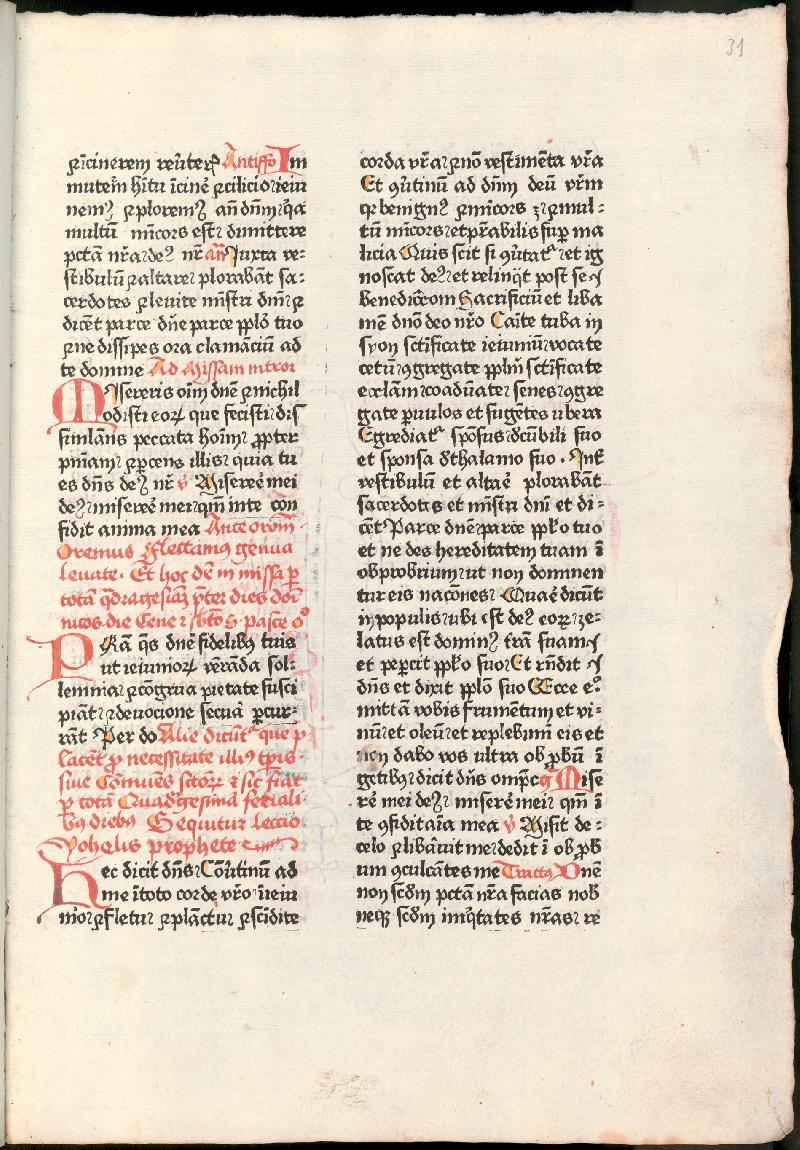 31
⁊ i cinerem reuteris Antiffo Im
mutem̄ hitu ī cine ⁊ cilicio ieiu
nem9 ⁊ plorem9 an̄ dnm̄ q̄a
multū mīcors est dimittere
pctā nr̄a de9 nr̄ an̄ Iuxta ve-
stibulū ⁊ altare plorabāt sa-
cerdotes ⁊ leuite mīstri dnī ⁊
dicēt parce dn̄e parce pplō tuo
⁊ ne dissipes ora clamāciū ad
te domine Ad Missam introi
Misereris oīm dnē ⁊ nichil
odisti eoꝝ que fecisti dis
similāns peccata hoīm ꝓpter
pniam ⁊ pcens illis quia tu
es dn̄s de9 nr̄ v̄ Miserere mei
de9 miserere mei qm̄ in te con
fidit anima mea Ante orōm̄
Oremus Flectamus genua
leuate. Et hoc dē in missa p̄
totā qdragesiā p̄ter dies doī
nicos die Cene
PRa q̄s dnē fidelib9 tuis
ut ieiunioꝝ verāda sol-
lemnia ⁊ cōgrua pietate susci
piāt ⁊ deuocione secura p̄cur-
rāt Per do Alie dicūt que p
lacēt p̄ necessitate illi9 tp̄is
siue Cōmunes sctōꝝ ⁊ sic fiat
p̄ totā Quadragesimā feriali
b9 dieb9 Sequitur leccio
Yohelis prophete
Hec dicit dn̄s Cōūtinū ad
me ī toto corde vr̄o ī ieiu
nio ⁊ fletu ⁊ plāctu ⁊ scīdite
corda vr̄a ⁊ nō vestimēta vr̄a
Et ꝯūtinū ad dnm̄ deū vr̄m
qr benign9 ⁊ mīcors ⁊ mul-
tū mīcors et pr̄abilis sup̄ ma
licia Quis scit si ꝯūtat' et ig
noscat de9 et relinqt post se
benedictōm Sacrificiū et liba
mē dnō deo nr̄o Canite tuba in
syon sctificate ieiuniū vocate
cetū ꝯgregate pplm̄ sctificate
ecclām coadunate senes ꝯgre
gate puulos et sugētes ubera
Egrediat' spōsus d̄ cubili suo
et sponsa d̄ thalamo suo. Int̄
vestibulū et altare plorabāt
sacerdotes et mīstri dnī et di-
cēt Parce dnē parce pplo tuo
et ne des hereditatem tuam ī
obprobrium ut non domnen
tur eis nacōnes Quare dicūt
in populis ubi est de9 eoꝝ ze-
latus est domin9 t̄rā suam
et pepercit pplo suo Et rn̄dit
dn̄s et dixit pplō suo Ecce e°
mittā vobis frumentum et vi-
nū et oleū et replebimī eis et
non dabo vos ultra obp̄bū ī
getib9 dicit dn̄s omp̄c g̅ Mise
rē mei de9 miserē mei qm̄ ī
te ꝯfidit aīa mea v̄ Misit de-
celo ⁊ libāuit me dedit ī obp̄b
um ꝯculcātes me Tractus Dnē
non scdm pctā nr̄a facias nob
neq3 scdm iniqtates nr̄as re